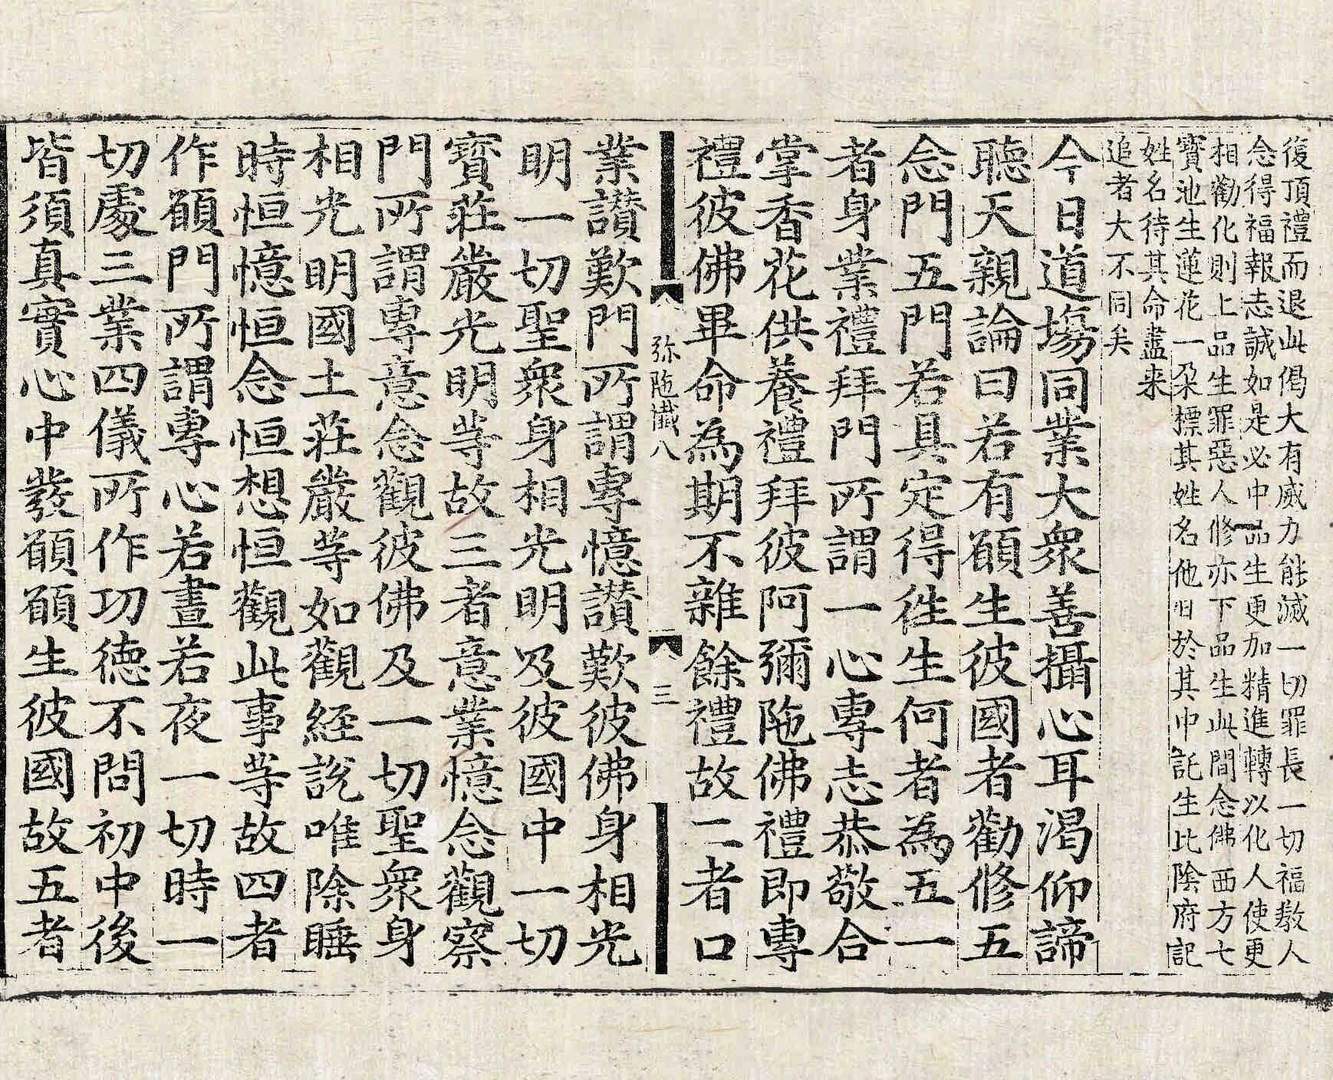 復頂禮而退此偈大有威力能滅一切罪長一切福教人
念得福報志誠如是必中品生更加精進轉以化人使更
相勸化則上品生罪惡人修亦下品生此間念佛西方七
寶池生蓮花一朶標其姓名他日於其中託生比陰府記
姓名待其命盡来
追者大不同矣
今日道塲同業大衆善攝心耳渴仰諦
聽天親論曰若有願生彼國者勸修五
念門五門若具定得徃生何者為五一
者身業禮拜門所謂一心專志恭敬合
掌香花供養禮拜彼阿彌陁佛禮即專
禮彼佛畢命為期不雜餘禮故二者口
弥陁懺八 三
業讃歎門所謂專憶讃歎彼佛身相光
明一切聖衆身相光明及彼國中一切
寶莊嚴光明等故三者意業憶念觀察
門所謂專意念觀彼佛及一切聖衆身
相光明國土莊嚴等如觀経說唯除睡
時恒憶恒念恒想恒觀此事等故四者
作願門所謂專心若晝若夜一切時一
切處三業四儀所作功德不問初中後
皆須真實心中發願願生彼國故五者